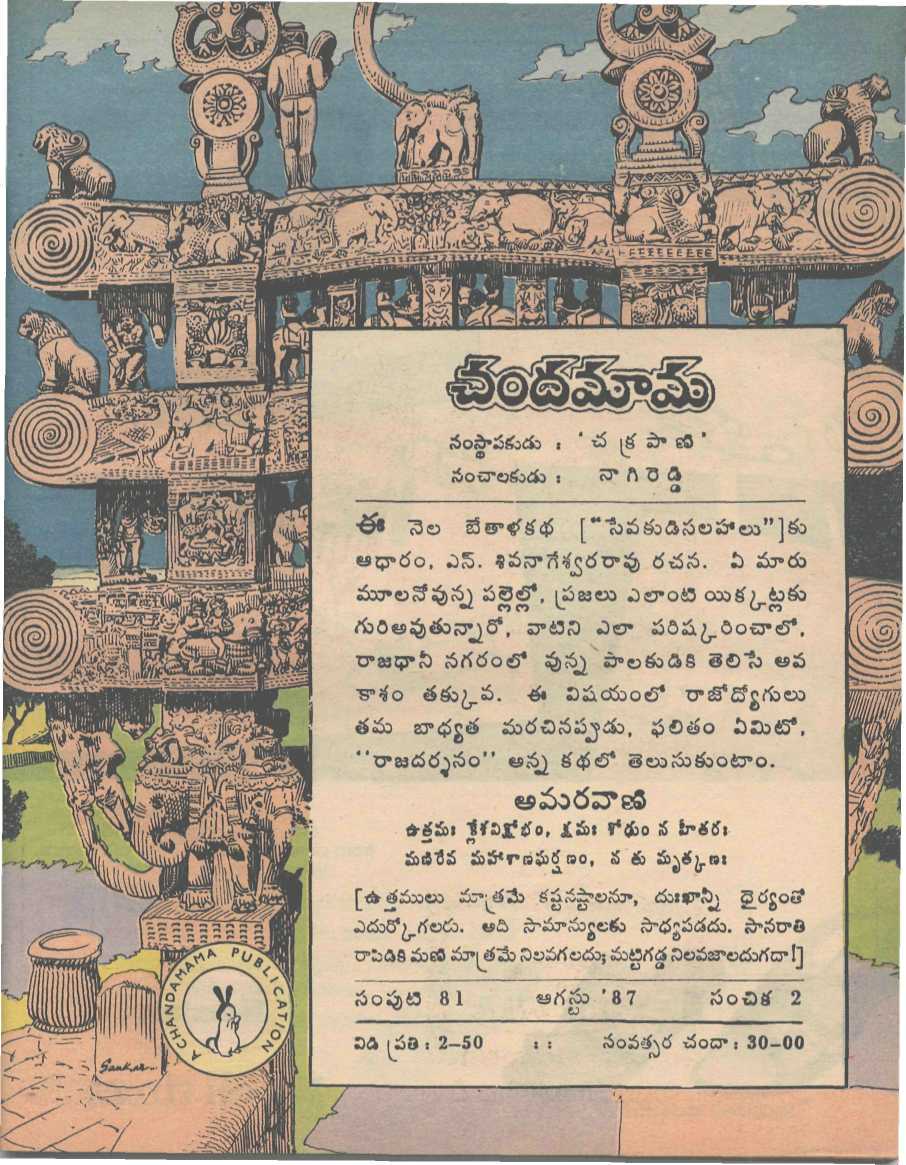 చందమామ
సంస్థాపకుడు : ' చ క్ర పా ణి '
సంచాలకుడు : నా గి రె డ్డి
ఈ నెల బేతాళకథ [“సేవకుడిసలహాలు”]కు
ఆధారం, ఎన్. శివనాగేశ్వరరావు రచన. ఏ మారు
మూలనోవున్న పల్లెల్లో, ప్రజలు ఎలాంటి యిక్కట్లకు
గురిఅవుతున్నారో, వాటిని ఎలా పరిష్కరించాలో,
రాజధానీ నగరంలో వున్న పాలకుడికి తెలిసే అవ
కాశం తక్కువ. ఈ విషయంలో రాజోద్యోగులు
తమ బాధ్యత మరచినప్పుడు, ఫలితం ఏమిటో,
‘‘రాజదర్శనం’’ అన్న కథలో తెలుసుకుంటాం.
అమరవాణి
ఉత్తమః క్లేశవిక్షోభం, క్షమః శోఢుం న హీతరః
మణిరేవ మహాశాణఘర్షణం, న తు మృత్కణః
[ఉత్తములు మాత్రమే కష్టనష్టాలనూ, దుఃఖాన్నీ ధైర్యంతో
ఎదుర్కోగలరు. అది సామాన్యులకు సాధ్యపడదు. సానరాతి
రాపిడికి మణి మాత్రమే నిలవగలదు; మట్టిగడ్డ నిలవజాలదుగదా!]
సంపుటి 81 ఆగస్టు '87 సంచిక 2
విడి ప్రతి : 2-50 : : సంవత్సర చందా : 30-00
A CHANDAMAMA PUBLICATION
Sankar...